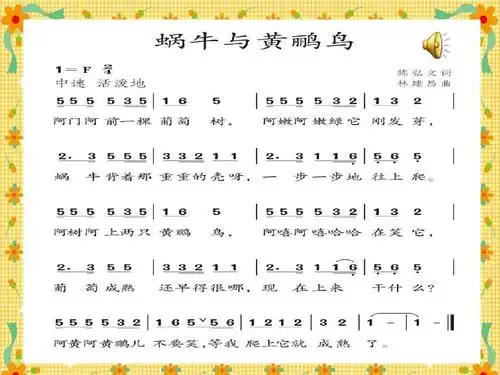 蜗牛与黄鹂鸟
1=F 2/4
陈弘文词
中速 活泼地
林建昌曲
555 535 | 16 5 | 555 535 | 132 |
阿门阿前一棵葡萄树，阿嫩阿嫩绿它刚发芽，
2. 3 555 | 5532 1 | 2. 3 11 6 | 56 6 |
蜗牛背着那重重的壳呀，一步一步地往上爬。
555 535 | 16 5 | 555 5535 | 132 |
阿树阿上两只黄鹂鸟，阿嘻阿嘻哈哈在笑它，
2. 3 555 | 5532 1 | 2. 3 116 | 56 5 |
葡萄成熟还早得很哪，现在上来干什么？
555 5532 | 165 56 | 5532 132 | 1 - | 1 - ‖
阿黄阿黄鹂儿不要笑，等我爬上它就成熟了。